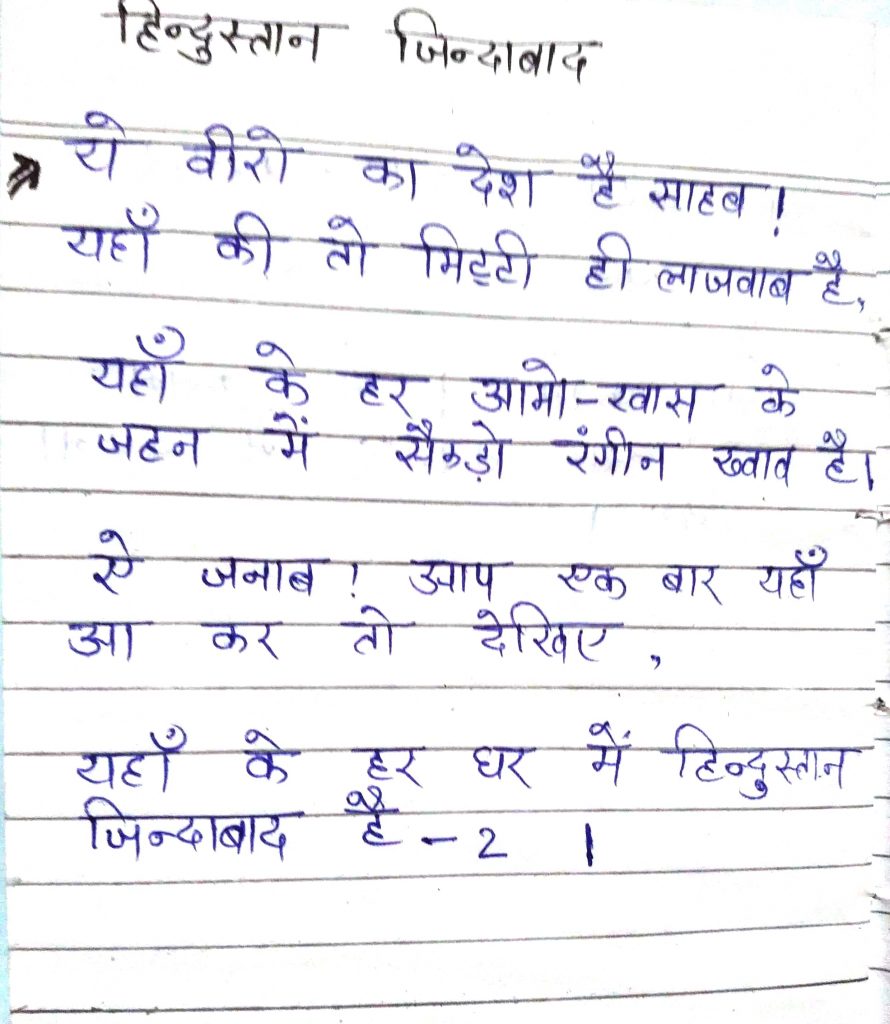 हिन्दुस्तान जिन्दाबाद
ये वीरो का देश है साहब !
यहाँ की तो मिट्टी ही लाजवाब है,
यहाँ के हर आमो-खास के
जहन में सैकड़ो रंगीन ख्वाब है।
ऐ जनाब ! आप एक बार यहाँ
आ कर तो देखिए ,
यहाँ के हर घर में हिन्दुस्तान
जिन्दाबाद है - 2 ।